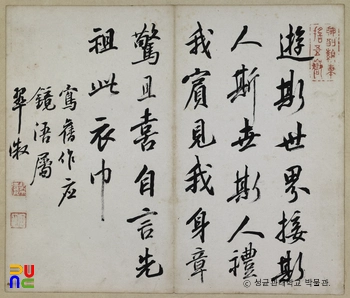 遊斯世界接斯
人斯世斯人禮
我賓見我身章
驚且喜自言先
祖此衣巾
寫舊作应
鏡浯屬
翠
© 성균관대학교 박물관.